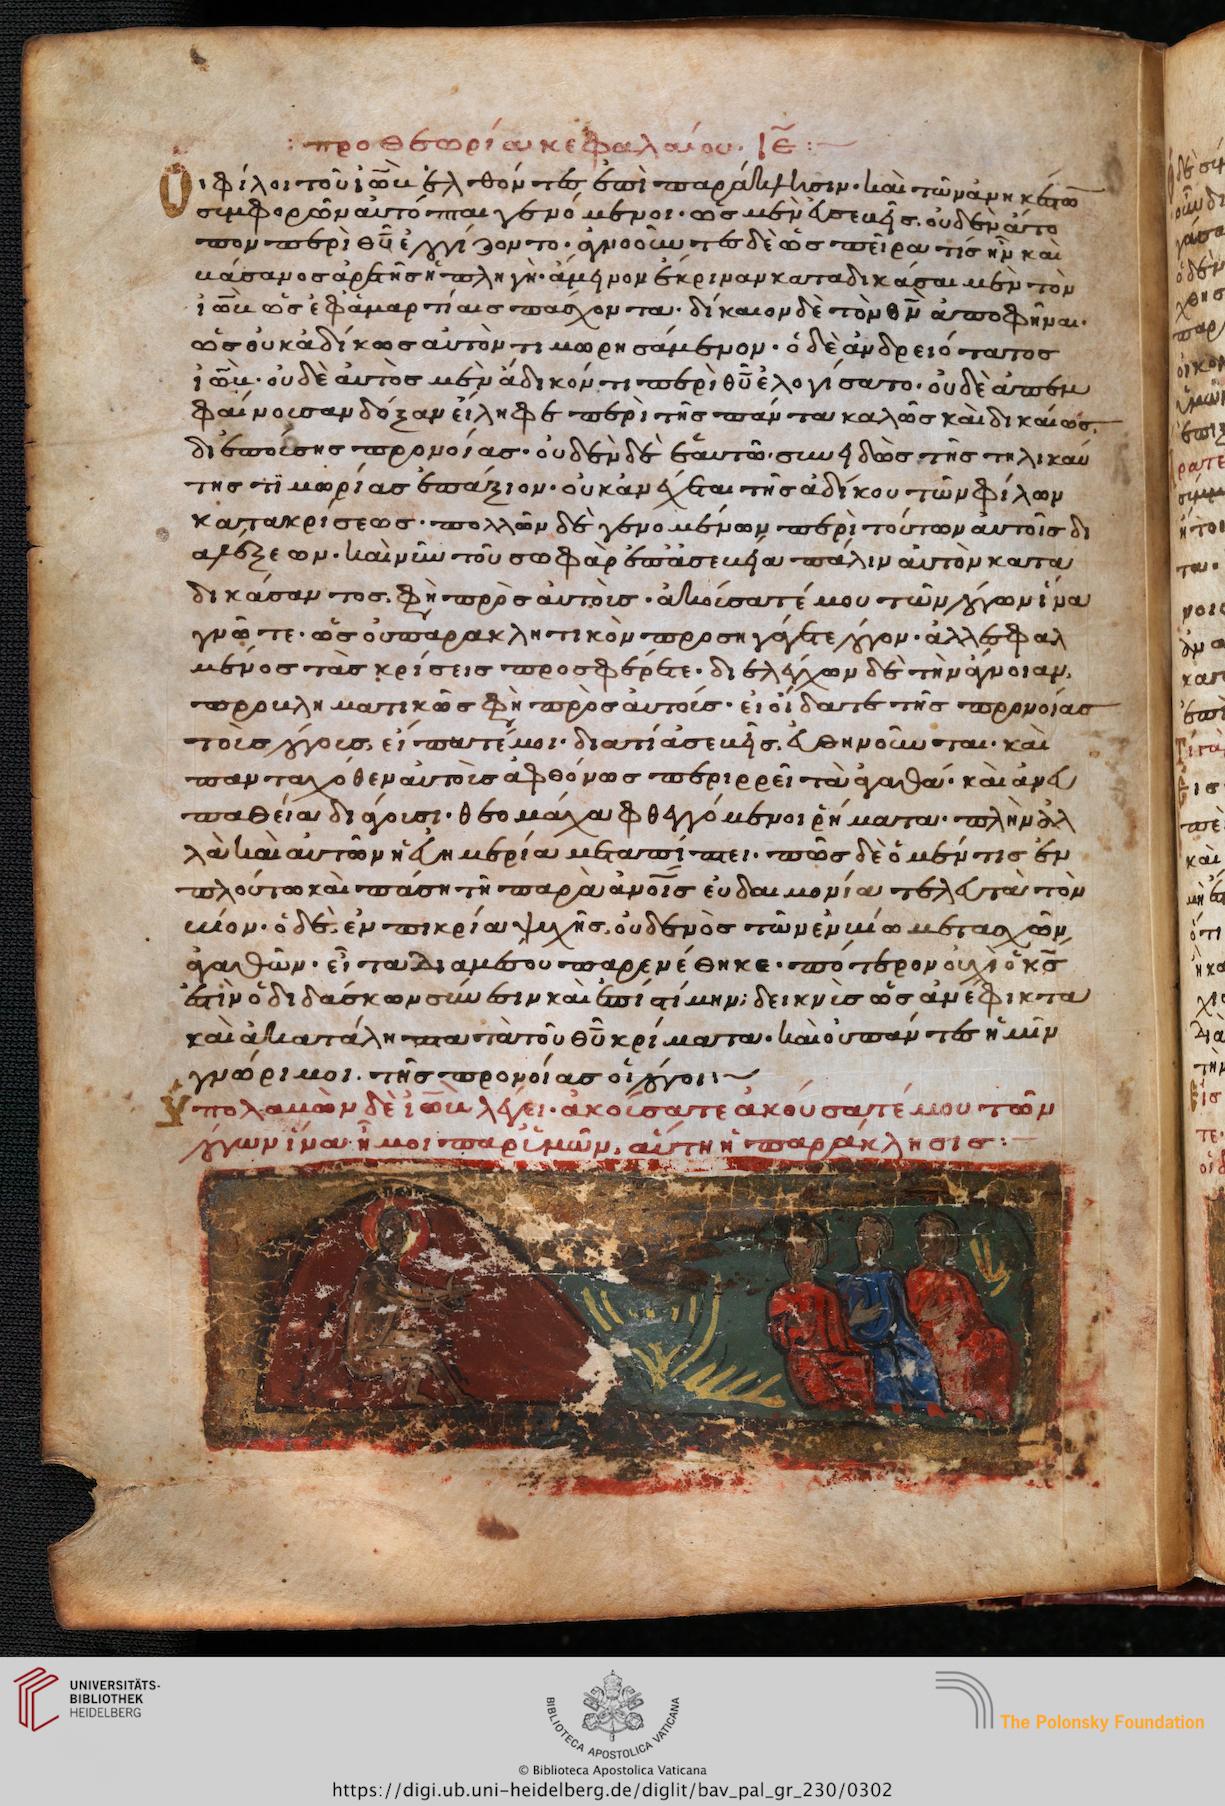 προθεωρία κεφαλαίου ιε
Οἱ φίλοι τοῦ ἰὼβ ἐλθόντες ἐπὶ παράκλησιν καὶ τῶν ἀνηκέστω
συμφορῶν αὐτόπται γενόμενοι ὡς μὲν εὐσεβεῖς οὐδὲν ἄτο
πον περὶ θυ ἐλογίζοντο ἀγνοοῦντες δὲ ὡς πεῖρα τίς ἦν καὶ
βάσανος ἀρετῆς ἡ πληγὴ ἀμείνον ἔκριναν καταδικάσαι μὲν τὸν
ἰὼβ ὡς ἐφ ἁμαρτίαις πάσχοντα δίκαιον δὲ τὸν θν ἀποφῆναι
ὡς οὐκ ἀδίκως αὐτὸν τιμωρησάμενον ὁ δὲ ἀνδρειότατος
ἰὼβ οὐδὲ αὐτὸς μὲν ἄδικόν τι περὶ θυ ἐλογίσατο οὐδὲ ἀπεμ
φαίνουσαν δόξαν εἴληφε περὶ τῆς πάντα καλῶς καὶ δικαίως
διεπούσης προνοίας οὐδὲν δὲ ἑαυτῶ συνειδὼς τῆς τηλικαύ
της τιμωρίας ἐπάξιον οὐκ ἀνέχεται τῆς ἀδίκου τῶν φίλων
κατακρίσεως πολλῶν δὲ γενομένων περὶ τούτων αὐτοῖς δι
αλέξεων καὶ νῦν τοῦ σωφὰρ ἐπ ἀσεβεία πάλιν αὐτὸν κατα
δικάσαντος φη πρὸς αὐτοὺς ἀκούσατέ μου τῶν λόγων ἵνα
γνῶτε ὡς οὐ παρακλητικὸν προσηγάγετε λόγον ἀλλ ἐσφαλ
μένος τὰς κρίσεις προσφέρετε διελέγχων δὲ τὴν ἄγνοιαν
προβληματικῶς φη πρὸς αὐτούς εἰ οἴδατε τῆς προνοίας
τοὺς λόγους εἴπατέ μοι διατί ἀσεβεῖς εὐθηνοῦνται καὶ
πανταχόθεν αὐτοῖς ἀφθόνως περιρρεῖ τὰ ἀγαθά καὶ ἀνευ
πάθεια διάγουσι θεομάχα φθεγγόμενοι ῥήματα πλὴν ἀλ
λὰ καὶ αὐτῶν ἡ εὐημερία μεταπίπτει πῶς δὲ ὁ μέν τις ἐν
πλούτω καὶ πάση τῆ παρὰ ἀνοις εὐδαιμονία τελευτᾶ τὸν
βίον ὁ δὲ ἐν πικρία ψυχῆς οὐδενὸς τῶν ἐν βίω μετασχὼν
ἀγαθῶν εἶτα διαμέσου παρενέθηκε πότερον οὐχὶ ὁ κς
ἐστὶν ὁ διδάσκων σύνεσιν καὶ ἐπιστήμην δεικνὺς ὡς ἀνέφικτα
καὶ ἀκατάληπτα τὰ τοῦ θυ κρίματα καὶ οὐ πάντες ἡμῖν
γνώριμοι τῆς προνοίας οἱ λόγοι
Ὑπολαβὼν δὲ ἰὼβ λέγει ἀκούσατε ἀκούσατέ μου τῶν
λόγων ἵνα ἦ μοι παρ ὑμῶν αὕτη ἡ παράκλησις
UNIVERSITÄTS-
BIBLIOTHEK
HEIDELBERG
BIBLIOTECA APOSTOLICA VATICANA
The Polonsky Foundation
© Biblioteca Apostolica Vaticana
https://digi.ub.uni-heidelberg.de/diglit/bav_pal_gr_230/0302